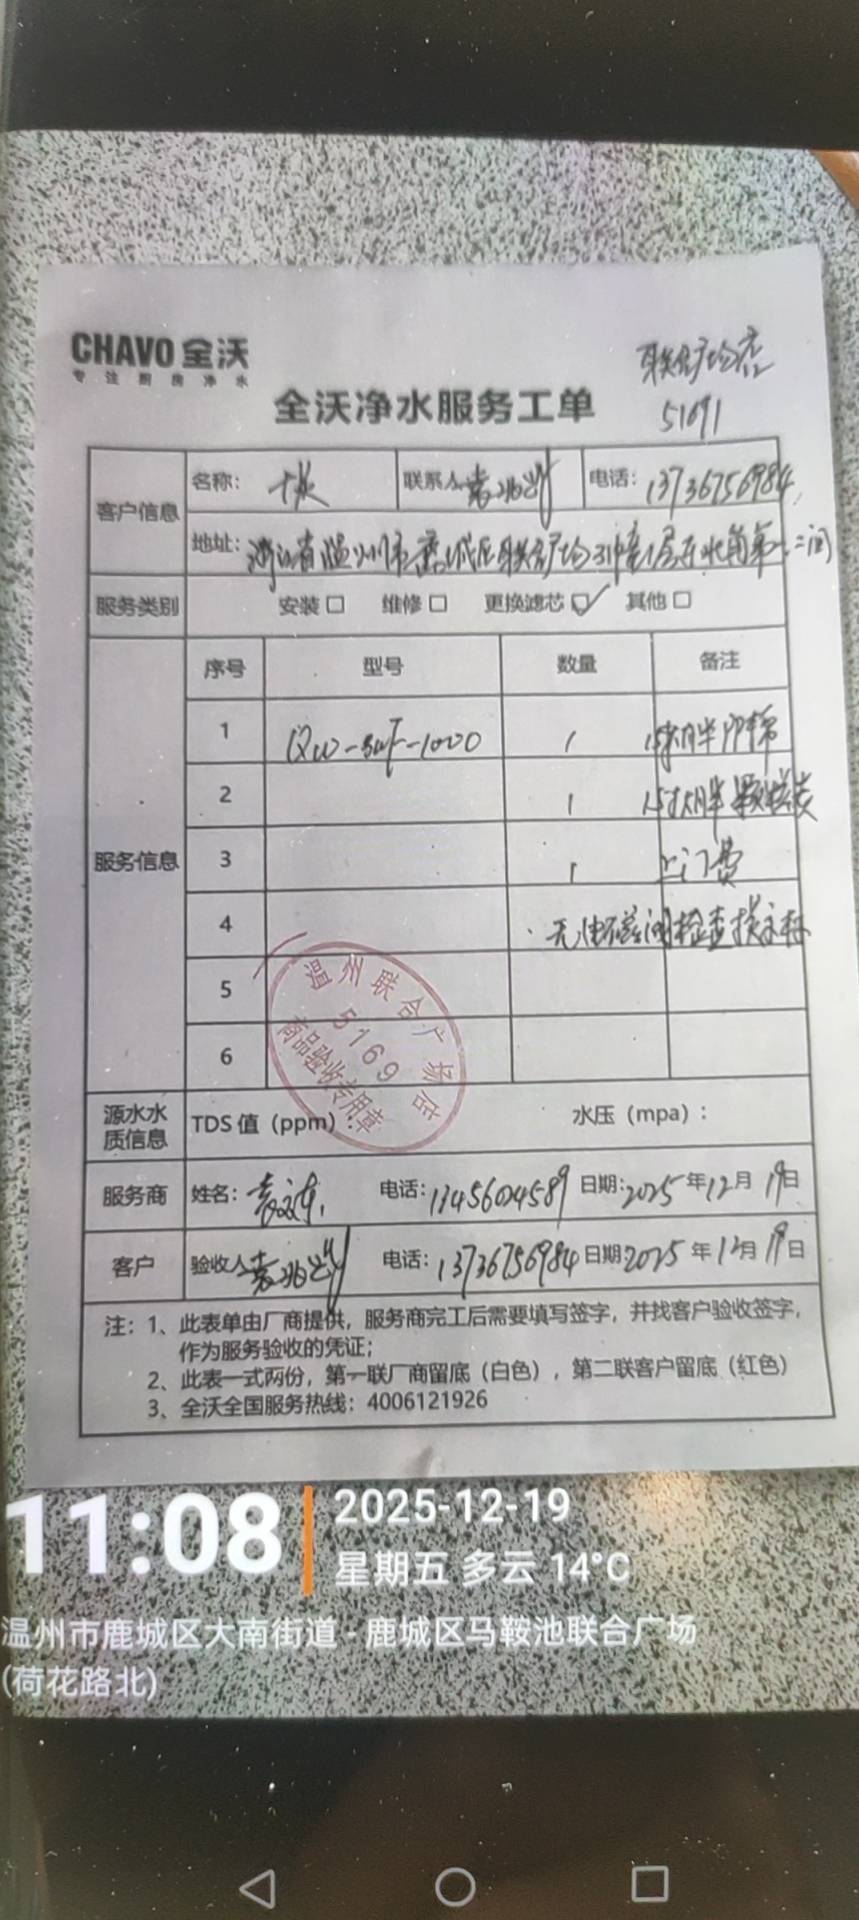 CHAVO 全沃
专注厨房净水
联合广场店
51691
全沃净水服务工单
客户信息
名称：
联系人
电话：13736756984
地址：浙江省温州市鹿城区联合广场 幢1层东北角第 二间
服务类别 安装□ 维修□ 更换滤芯☑ 其他□
服务信息
序号 型号 数量 备注
1 QW- -1000 1 PP棉
2 1 颗粒炭
3 1 上门费
4 无 电磁阀检查
5
6
温州联合广场店
5169
商品验收专用章
源水水质信息 TDS 值（ppm）： 水压（mpa）：
服务商 姓名： 电话： 日期：2025 年12月 19日
客户 验收人 电话：13736756984 日期 2025 年 12月 19日
注：1、此表单由厂商提供，服务商完工后需要填写签字，并找客户验收签字，
作为服务验收的凭证；
2、此表一式两份，第一联厂商留底（白色），第二联客户留底（红色）
3、全沃全国服务热线：4006121926
11:08
2025-12-19
星期五 多云 14°C
温州市鹿城区大南街道 - 鹿城区马鞍池联合广场
(荷花路北)